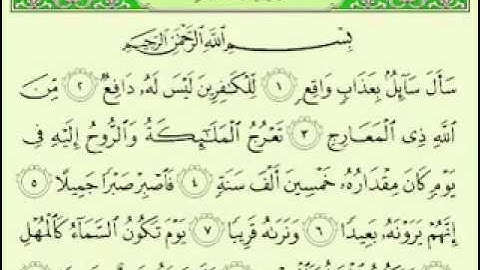 بِسْمِ ٱللَّهِ ٱلرَّحْمَٰنِ ٱلرَّحِيمِ
سَأَلَ سَآئِلٌۢ بِعَذَابٖ وَاقِعٖ ١ لِّلۡكَٰفِرِينَ لَيۡسَ لَهُۥ دَافِعٞ ٢ مِّنَ
ٱللَّهِ ذِي ٱلۡمَعَارِجِ ٣ تَعۡرُجُ ٱلۡمَلَٰٓئِكَةُ وَٱلرُّوحُ إِلَيۡهِ فِي
يَوۡمٖ كَانَ مِقۡدَارُهُۥ خَمۡسِينَ أَلۡفَ سَنَةٖ ٤ فَٱصۡبِرۡ صَبۡرٗا جَمِيلًا ٥
إِنَّهُمۡ يَرَوۡنَهُۥ بَعِيدٗا ٦ وَنَرَىٰهُ قَرِيبٗا ٧ يَوۡمَ تَكُونُ ٱلسَّمَآءُ كَٱلۡمُهۡلِ